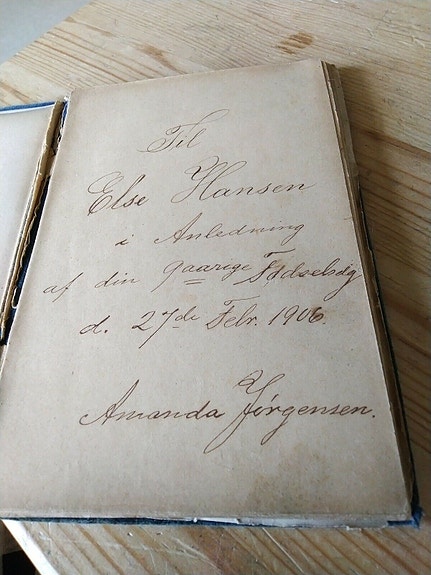 Til
Else Hansen
i Anledning
af din 9aarige Fødselsdg
d. 27de Febr. 1906.
Amanda Jørgensen.